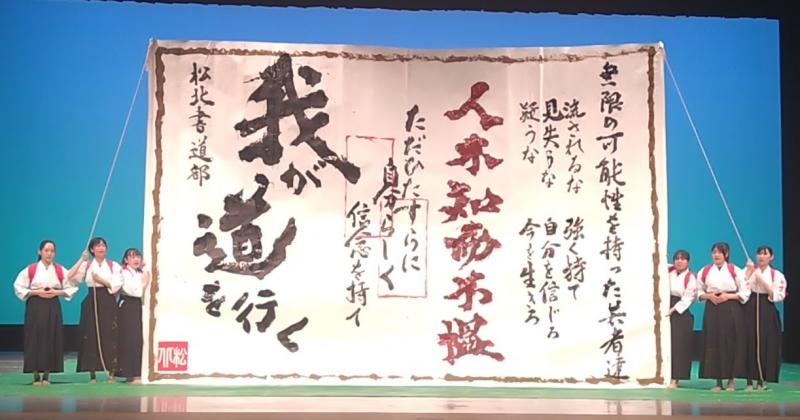 無限の可能性を持った兵者達
流されるな 強く持て
見失うな 自分を信じろ
疑うな 今を生きろ
人不知而不慍
ただひたすらに
自分らしく
信念を持て
我が
道
を行く
松北書道部
松北